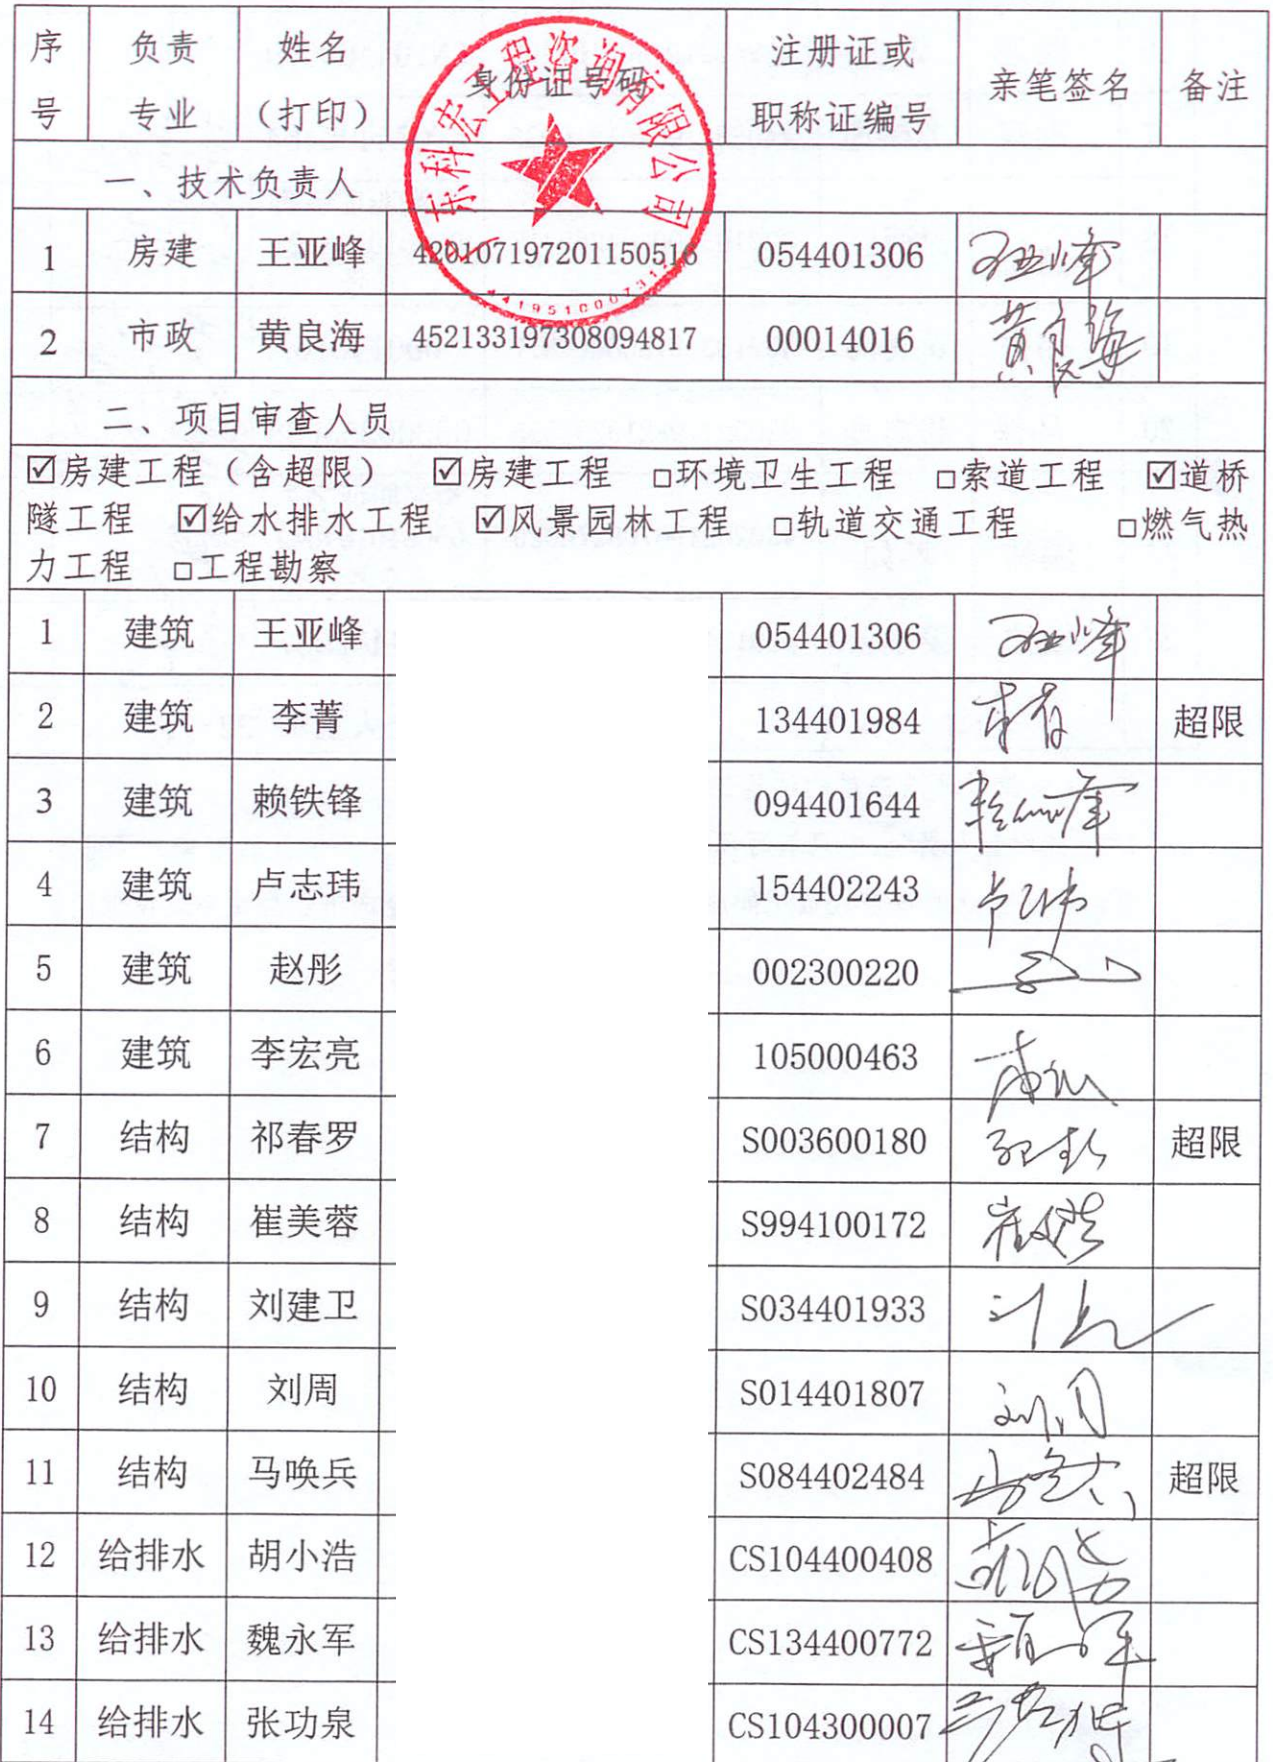 序号 负责专业 姓名（打印） 身份证号码 注册证或职称证编号 亲笔签名 备注
广东科宏工程咨询有限公司
一、技术负责人
1 房建 王亚峰 420107197201150516 054401306 王亚峰
2 市政 黄良海 452133197308094817 00014016 黄良海
二、项目审查人员
☑房建工程（含超限） ☑房建工程 □环境卫生工程 □索道工程 ☑道桥
隧工程 ☑给水排水工程 ☑风景园林工程 □轨道交通工程 □燃气热
力工程 □工程勘察
1 建筑 王亚峰 054401306 王亚峰
2 建筑 李菁 134401984 李菁 超限
3 建筑 赖铁锋 094401644
4 建筑 卢志玮 154402243
5 建筑 赵彤 002300220
6 建筑 李宏亮 105000463
7 结构 祁春罗 S003600180 超限
8 结构 崔美蓉 S994100172
9 结构 刘建卫 S034401933
10 结构 刘周 S014401807 刘周
11 结构 马唤兵 S084402484 超限
12 给排水 胡小浩 CS104400408
13 给排水 魏永军 CS134400772
14 给排水 张功泉 CS104300007